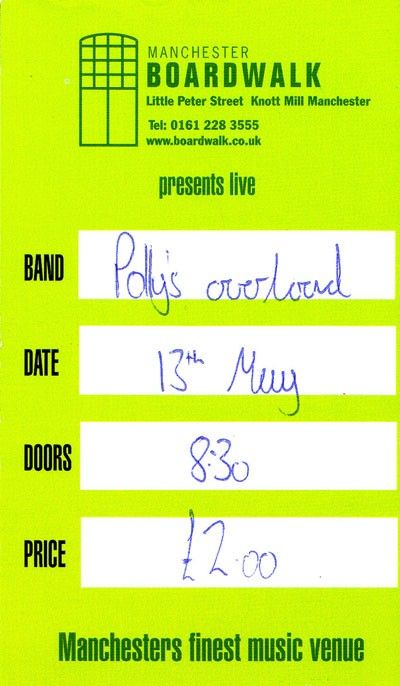 MANCHESTER
BOARDWALK
Little Peter Street Knott Mill Manchester
Tel: 0161 228 3555
www.boardwalk.co.uk
presents live
BAND Polly's overload
DATE 13th May
DOORS 8:30
PRICE £2.00
Manchesters finest music venue